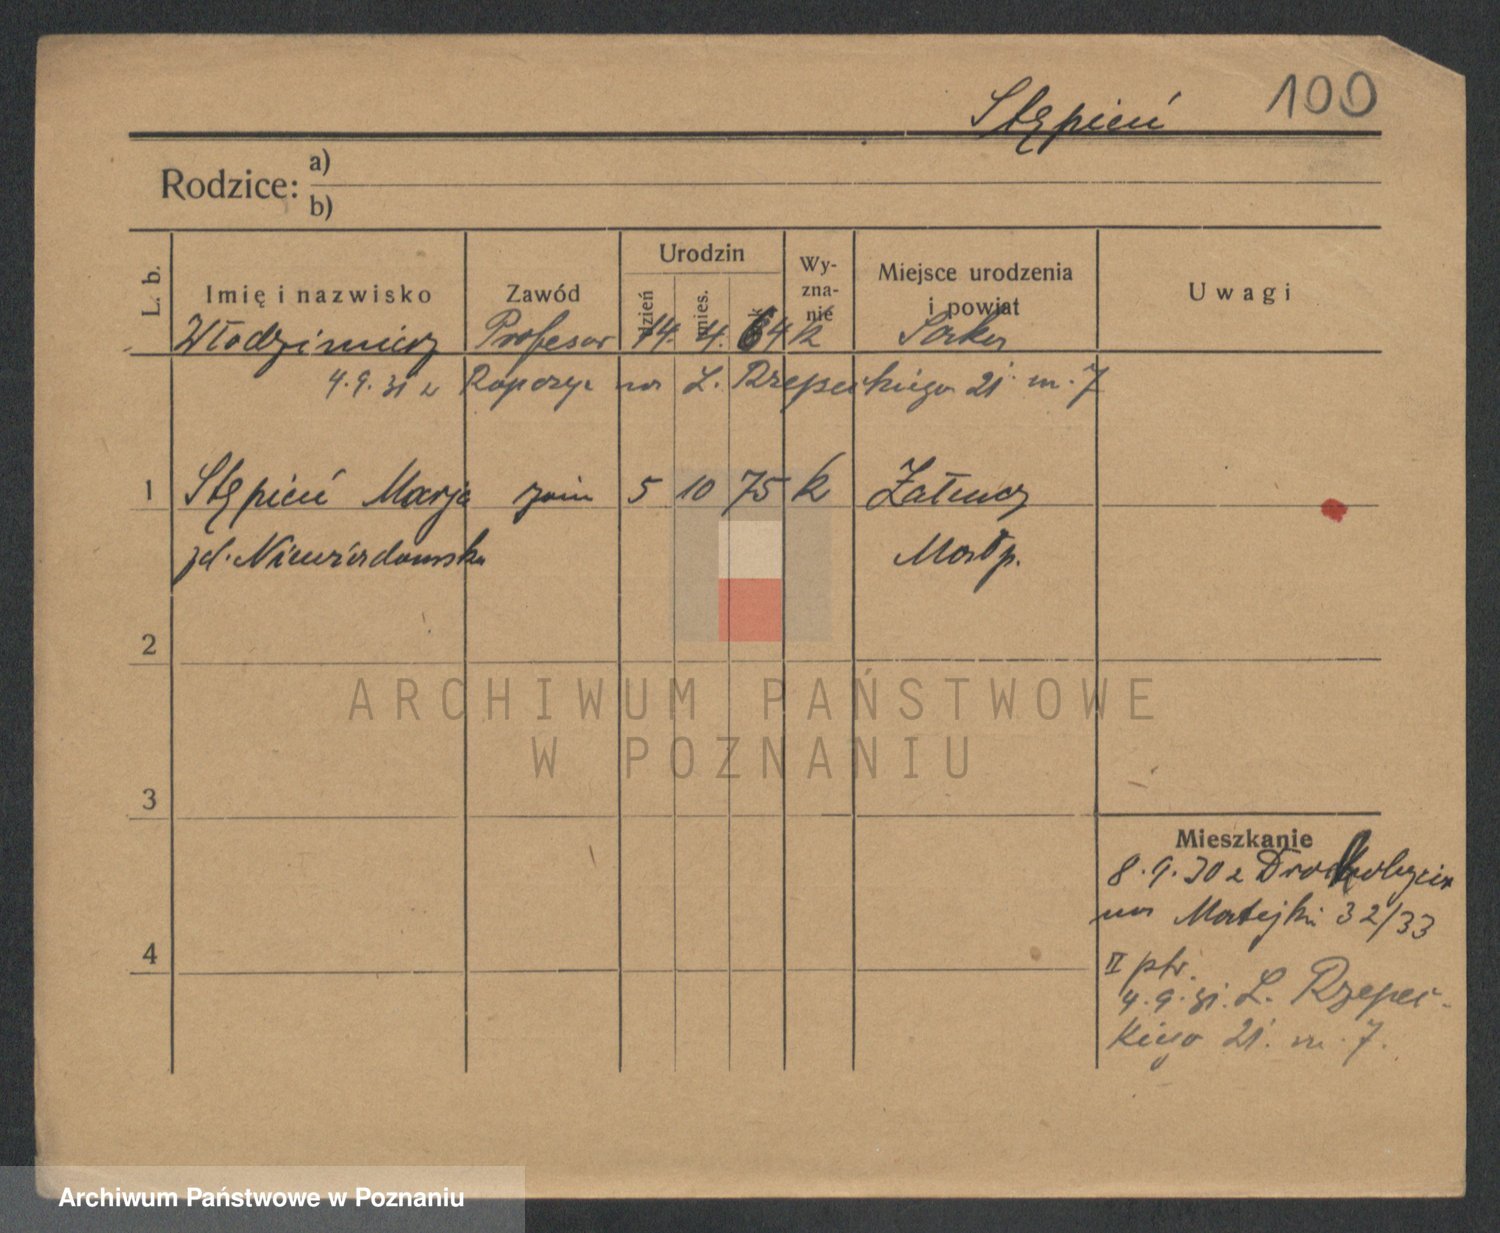 Stępień 100
Rodzice: a)
b)
L. b. Imię i nazwisko Zawód Urodzin dzień mies. Wy-zna-nie Miejsce urodzenia i powiat Uwagi
Włodzimierz Profesor 14. 4. 64 k
4.9.31 z Ropczyc na L. Rzepeckiego 21 m. 7
1 Stępień Marja 5 10 75 k
zd. Niewiadomska Małp.
2
ARCHIWUM PAŃSTWOWE
W POZNANIU
3
Mieszkanie
8.9.30 z Drohobycza
na Matejki 32/33
4
II ptr.
4.9.31. L. Rzepec-
kiego 21. m. 7.
Archiwum Państwowe w Poznaniu